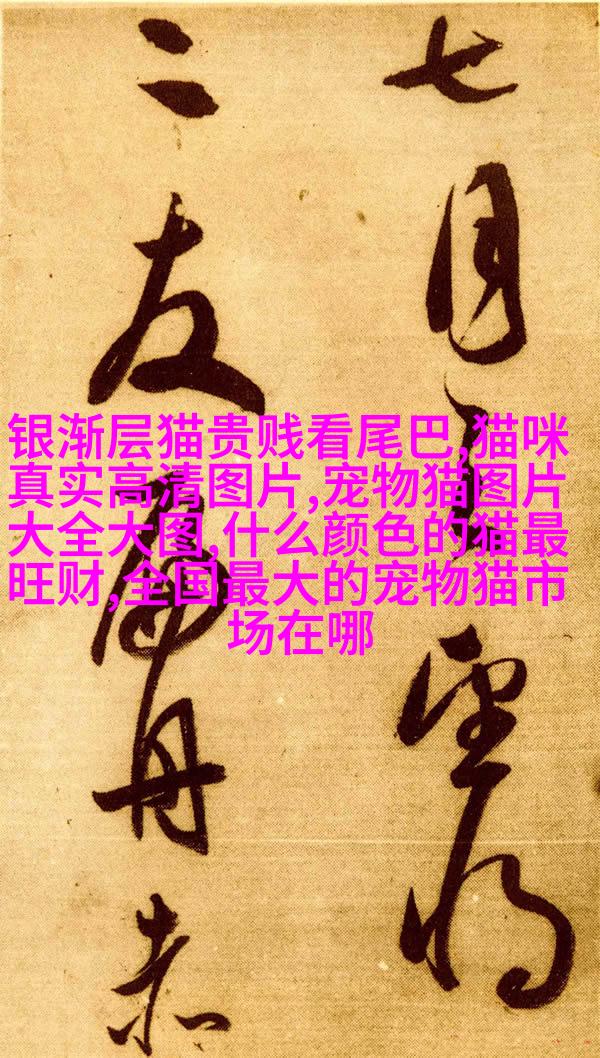 七月望将
二友舟赤
银渐层猫贵贱看尾巴,猫咪
真实高清图片,宠物猫图片
大全大图,什么颜色的猫最
旺财,全国最大的宠物猫市
场在哪